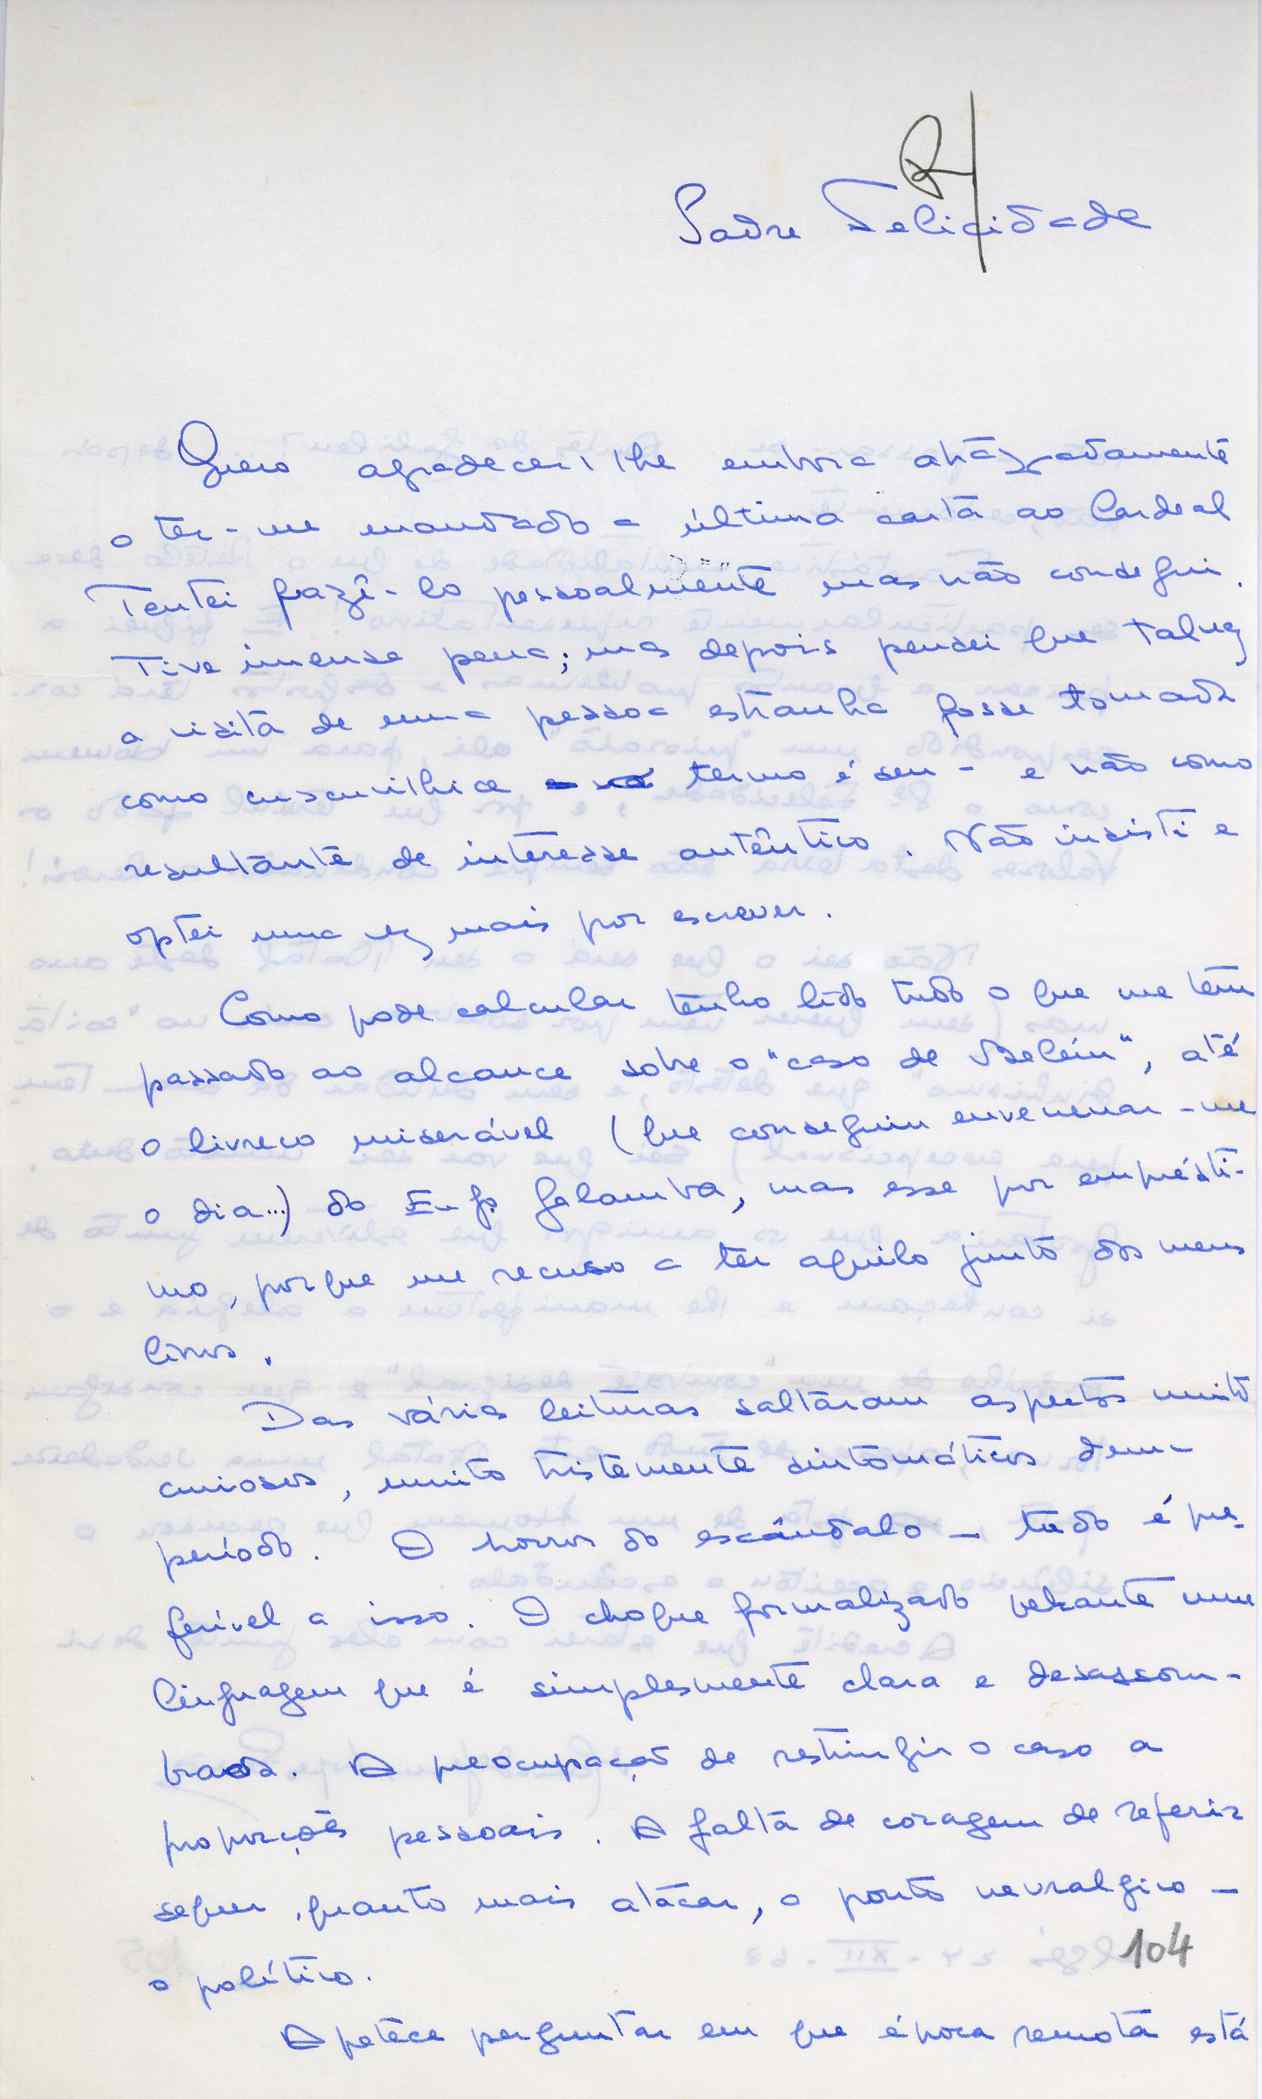 R/
Padre Felicidade
Quero agradecer-lhe embora atrazadamente
o ter-me mandado a última carta ao Cardeal
Tentei fazê-lo pessoalmente mas não consegui.
Tive imensa pena; mas depois pensei que talvez
a visita de uma pessoa estranha fosse tomada
como cuscuvilhice - termo é seu - e não como
resultante de interesse autêntico. Não insisti e
optei uma vez mais por escrever.
Como pode calcular tenho lido tudo o que me têm
passado ao alcance sobre o "caso de Belém", até
o livreco miserável (que conseguiu envenenar-me
o dia...) do Galamba, mas esse por emprésti-
mo, porque me recuso a ter aquilo junto dos meus
livros.
Das várias leituras saltaram aspectos muito
curiosos, muito tristemente sintomáticos dum
período. O horror do escândalo - tudo é pre-
ferível a isso. O choque formalizado perante uma
linguagem que é simplesmente clara e desassom-
brada. A preocupação de restringir o caso a
proporções pessoais. A falta de coragem de referir
sequer, quanto mais atacar, o ponto nevralgico -
o político.
104
Apetece perguntar em que época remota está